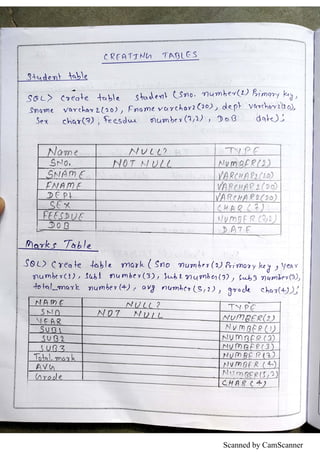 CREATING TABLES
Student table
SQL> Create table student (Sno. number(2) Primary key,
Sname varchar2(20), Fname varchar2(20), dept varchar2(20),
Sex char(7), Feesdue number(7,2), DOB date);
Name NULL? TYPE
SNO. NOT NULL NUMBER(2)
SNAME VARCHAR2(20)
FNAME VARCHAR2(20)
DEPT VARCHAR2(20)
SEX CHAR(7)
FEESDUE NUMBER(7,2)
DOB DATE
Marks Table
SQL> Create table mark (Sno number(2) Primary key, year
number(1), Sub1 number(3), Sub2 number(3), Sub3 number(3),
total_mark number(4), avg number(5,2), grade char(4));
NAME NULL? TYPE
SNO NOT NULL NUMBER(2)
YEAR NUMBER(1)
SUB1 NUMBER(3)
SUB2 NUMBER(3)
SUB3 NUMBER(3)
Total_mark NUMBER(4)
AVG NUMBER(5,2)
Grade CHAR(4)
Scanned by CamScanner